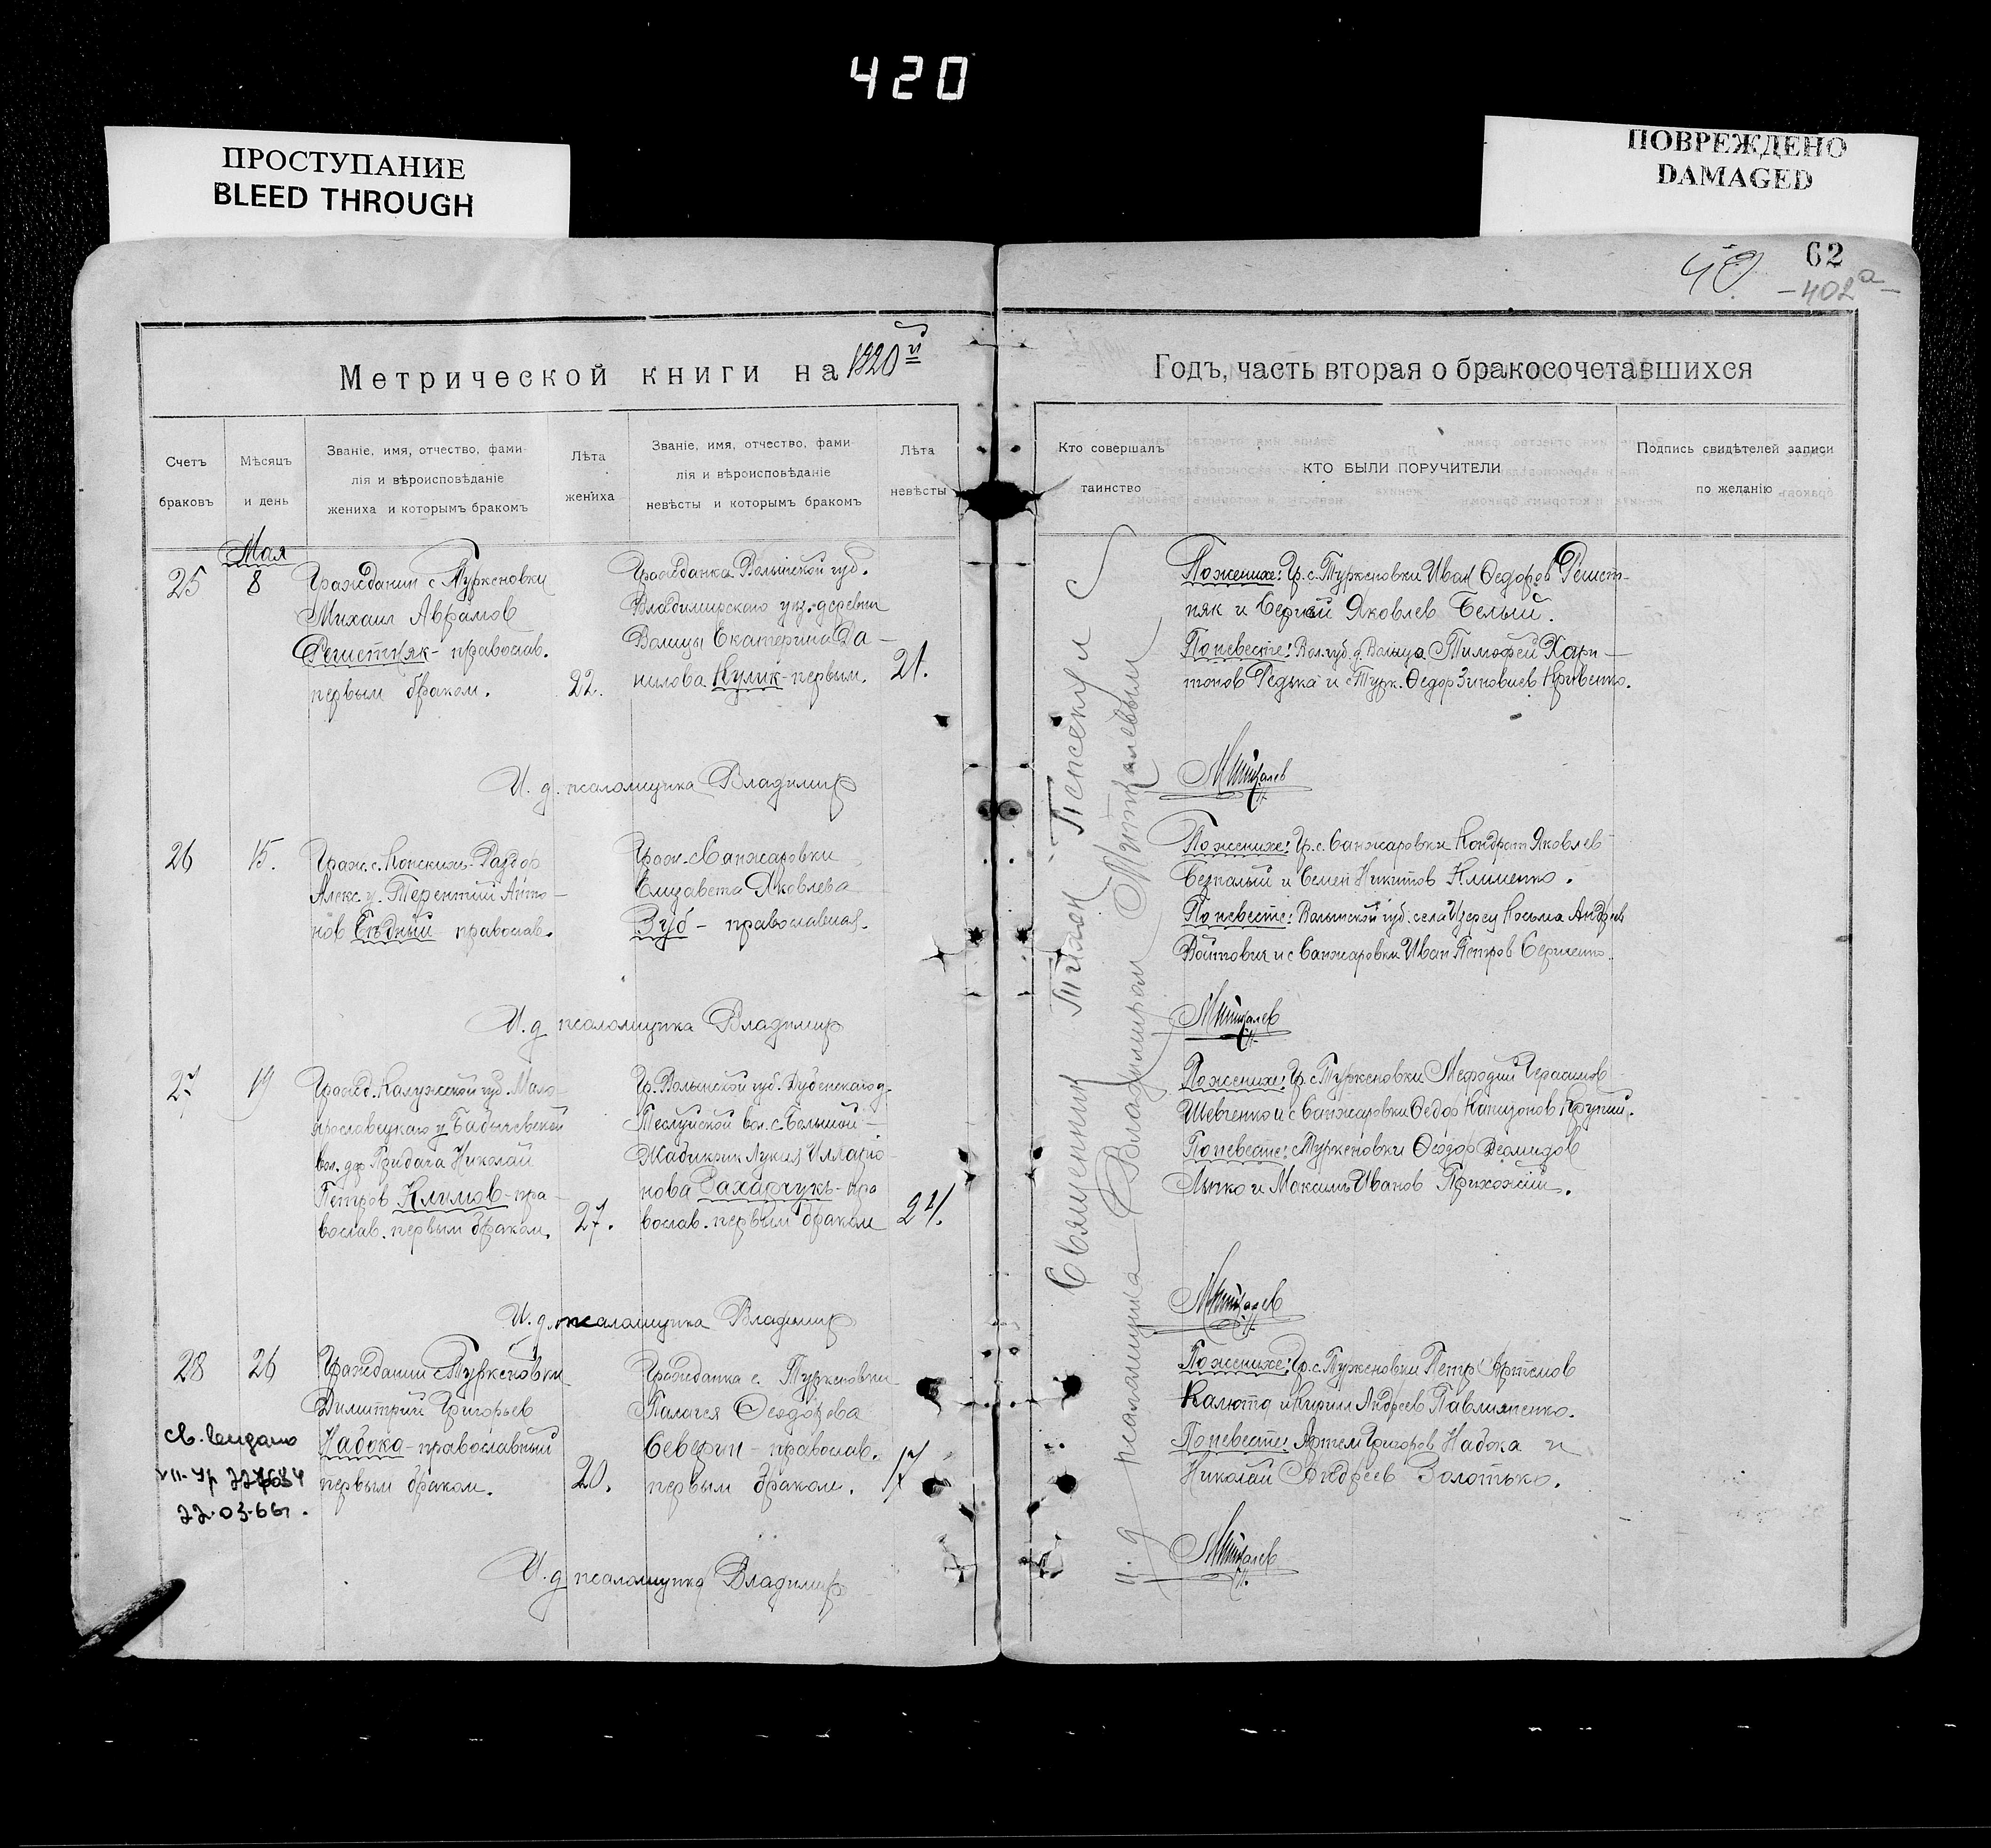 420
ПРОСТУПАНИЕ
BLEED THROUGH
ПОВРЕЖДЕНО
DAMAGED
62
40
-402а-
Метрической книги на 1920й
Годъ, часть вторая о бракосочетавшихся
Счетъ браковъ
Мѣсяцъ и день
Званіе, имя, отчество, фами-
лія и вѣроисповѣданіе
жениха и которымъ бракомъ
Лѣта жениха
Званіе, имя, отчество, фами-
лія и вѣроисповѣданіе
невѣсты и которымъ бракомъ
Лѣта невѣсты
Кто совершалъ таинство
КТО БЫЛИ ПОРУЧИТЕЛИ
Подпись свидѣтелей записи
по желанію
Мая
25
8
Гражданин с. Туркеновки
Михаил Аврамов
Решетняк - православ.
первым браком.
22.
Гражданка Волынской губ.
Владимирскаго уез. деревни
Волицы Екатерина Да-
нилова Кулик - первым.
21.
По женихе: Гр. с. Туркеновки Иван Федоров Решет-
няк и Сергей Яковлев Белый.
По невесте: Вол. губ. д. Волица Тимофей Хари-
тонов Редька и с Турк. Федор Зиновиев Кривенко.
И. д. псаломщика Владимир
Митцалев
26
15.
Граж. с. Конских-Раздор
Алекс. у. Терентий Анто-
нов Бедный православ.
Граж. с Санжаровки
Елизавета Яковлева
Зуб - православная.
По женихе: Гр. с. Санжаровки Кондрат Яковлев
Безпалый и Семен Никитов Клименко.
По невесте: Волынской губ. села Косьма Андреев
Войтович и с Санжаровки Иван Петров Сергиенко.
И. д. псаломщика Владимир
Митцалев
27
19
Гражд. Калужской губ. Мало-
ярославецкаго у.
вол. дер. Придача Николай
Петров Климов - пра-
вослав. первым браком.
27.
Гр. Волынской губ. Дубенскаго у.
вол. с. Большой
Лукия Илларио-
нова Захарчукъ - пра
вослав. первым браком
24.
По женихе: Гр. с Туркеновки Мефодий Герасимов
Шевченко и с Санжаровки Федор Крупий.
По невесте: с Туркеновки Феодор Деомидов
Лынко и Максимъ Иванов Прихожий.
И. д. псаломщика Владимир
Митцалев
28
26
Гражданин с Туркеновки
Димитрий Григорьев
Набока - православный
первым браком.
20.
Гражданка с. Туркеновки
Палагея Феодорова
Северин - православ.
первым браком.
17
По женихе: Гр. с. Туркеновки Петр Артемов
Калюта и Кирил Андреев Павлияненко.
По невесте: Артем Григоров Набока и
Николай Андреев Золотько.
св.
22.03.66г.
И. д псаломщика Владимир
Митцалев
Священник Тихон Пепескул с
и. д псаломщика Владимиром Митцалевым